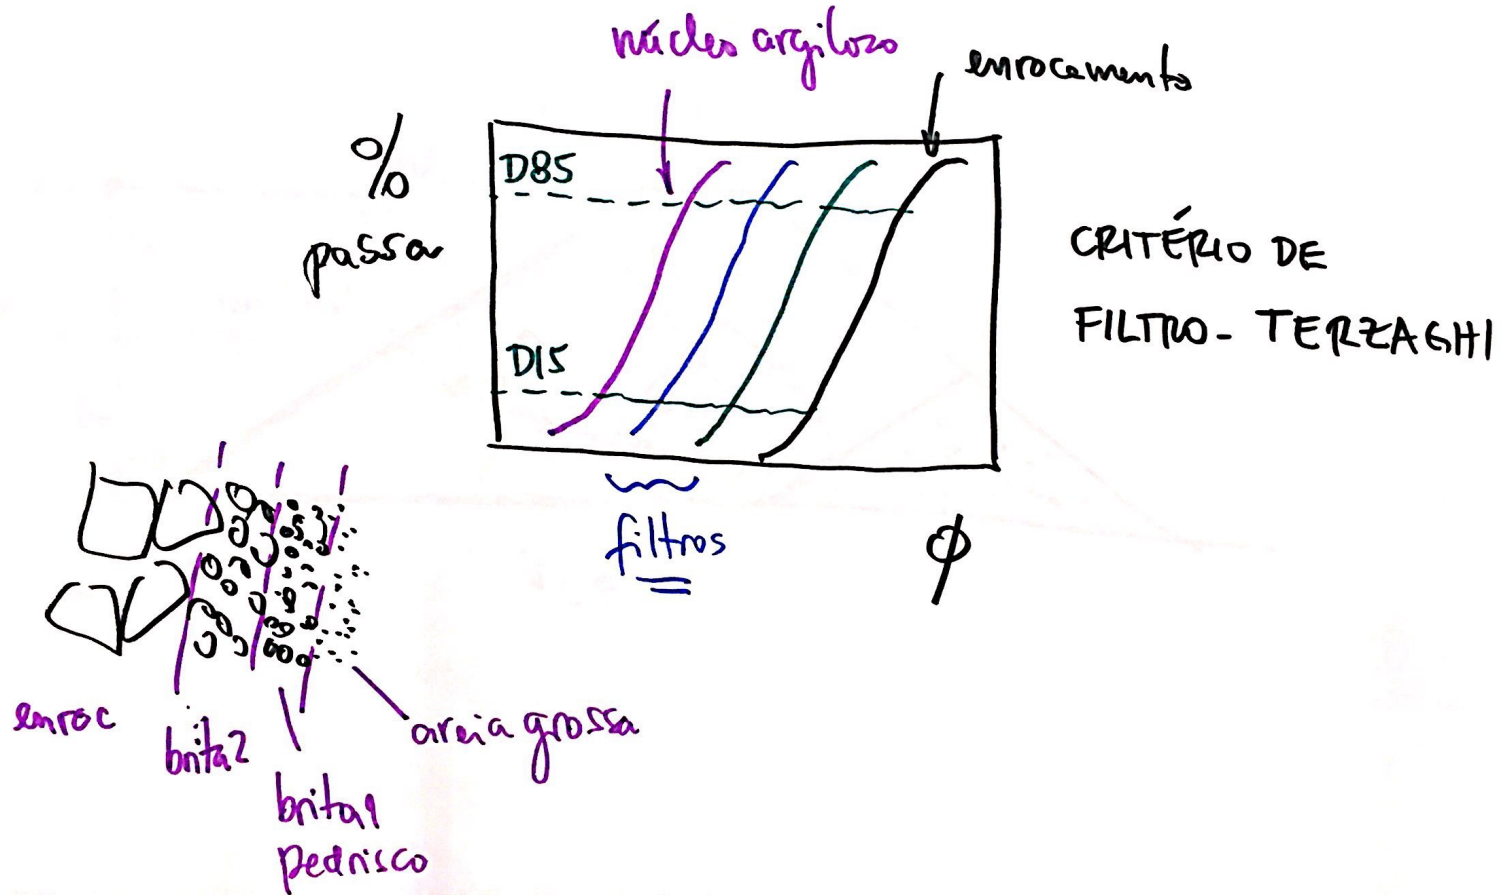 núcleo argiloso
enrocamento
%
passa
D85
D15
CRITÉRIO DE
FILTRO - TERZAGHI
filtros
ϕ
enroc
brita 2
brita 1
pedrisco
areia grossa